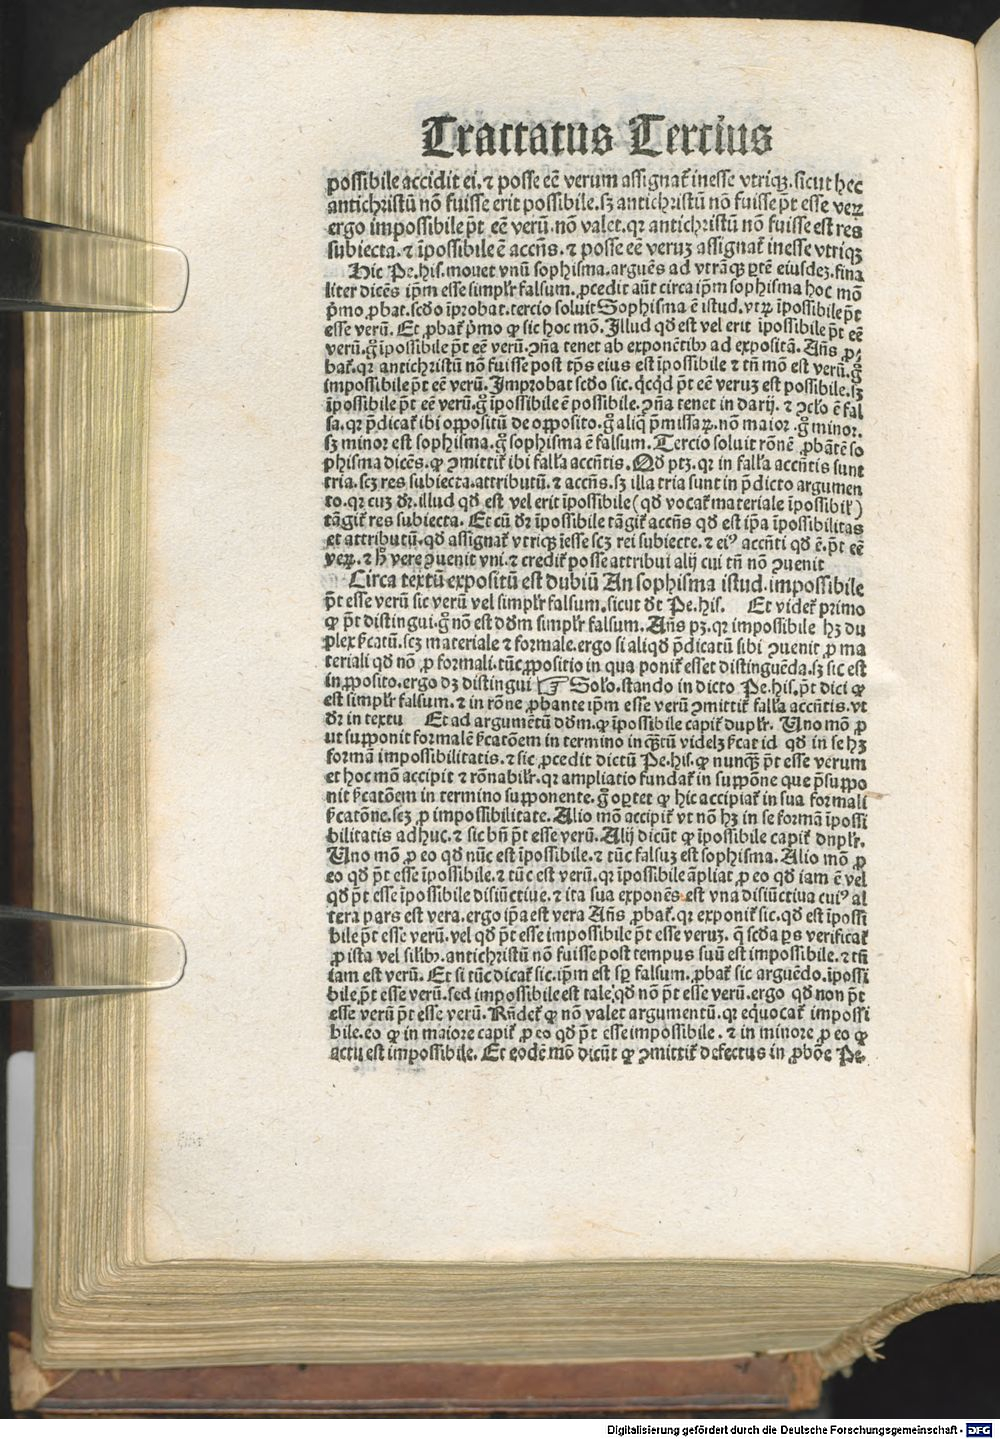 Tractatus Tercius
possibile accidit ei. ⁊ posse eē verum assignat᷑ inesse vtriqꝫ. sicut hec
antichristū nō fuisse erit possibile. sꝫ antichristū nō fuisse p̄t esse verꝝ
ergo impossibile p̄t eē verū. nō valet. qꝛ antichristū nō fuisse est res
subiecta. ⁊ īpossibile ē accn̄s. ⁊ posse eē veruꝫ assignat᷑ inesse vtriqꝫ
Hic Pe. his. mouet vnū sophisma. arguēs ad vtrāqꝫ ꝑtē eiusdeꝫ. fina
liter dicēs ip̄m esse simpl̓r falsum. ꝓcedit aūt circa ip̄m sophisma hoc mō
p̄mo ꝓbat. scd̓o īprobat. tercio soluit Sophisma ē istud. vtꝝ īpossibile p̄t
esse verū. Et ꝓbat᷑ p̄mo ꝙ sic hoc mō. Illud qd̓ est vel erit īpossibile p̄t eē
verū. gͦ īpossibile p̄t eē verū. ꝯn̄a tenet ab exponētibꝰ ad expositā. An̄s ꝓ
bat᷑. qꝛ antichristū nō fuisse post tp̄s eius est īpossibile ⁊ tn̄ mō est verū. gͦ
impossibile p̄t eē verū. Improbat scd̓o sic. qͥcqͥd p̄t eē veruꝫ est possibile. sꝫ
īpossibile p̄t eē verū. gͦ īpossibile ē possibile. ꝯn̄a tenet in darij. ⁊ ꝯcl̓o ē fal
sa. qꝛ p̄dicat᷑ ibi oppositū de opposito. gͦ aliq̄ p̄missaꝝ. nō maior. gͦ minor.
sꝫ minor est sophisma. gͦ sophisma ē falsum. Tercio soluit rōnē ꝓbātē so
phisma dicēs. ꝙ ꝯmittit᷑ ibi fall̓a accn̄tis. Qd̓ ptꝫ. qꝛ in fall̓a accn̄tis sunt
tria. scꝫ res subiecta. attributū. ⁊ accn̄s. sꝫ illa tria sunt in p̄dicto argumen
to. qꝛ cuꝫ dr̄. illud qd̓ est vel erit īpossibile (qd̓ vocat᷑ materiale īpossibil̓)
tāgit᷑ res subiecta. Et cū dr̄ īpossibile tāgit᷑ accn̄s qd̓ est ip̄a īpossibilitas
et attributū. qd̓ assignat᷑ vtriqꝫ īesse scꝫ rei subiecte. ⁊ eiꝰ accn̄ti qd̓ ē. p̄t eē
verꝝ. ⁊ hͦ vere ꝯuenit vni. ⁊ credit᷑ posse attribui alij cui tn̄ nō ꝯuenit
Circa textū expositū est dubiū An sophisma istud. impossibile
p̄t esse verū sic verū vel simpl̓r falsum. sicut dt̄ Pe. his. Et videt᷑ primo
ꝙ p̄t distingui. gͦ nō est dd̓m simpl̓r falsum. An̄s pꝫ. qꝛ impossibile hꝫ du
plex ſ̓catū. scꝫ materiale ⁊ formale. ergo si aliqd̓ p̄dicatū sibi ꝯuenit ꝓ ma
teriali qd̓ nō ꝓ formali. tūc ꝓpositio in qua ponit᷑ esset distinguēda. sꝫ sic est
in ꝓposito. ergo dꝫ distingui ☞ Sol̓o. stando in dicto Pe. his. p̄t dici ꝙ
est simpl̓r falsum. ⁊ in rōne ꝓbante ip̄m esse verū ꝯmittit᷑ fall̓a accn̄tis. vt
dr̄ in textu Et ad argumētū dd̓m. ꝙ īpossibile capit᷑ dupl̓r. Uno mō ꝓ
ut supponit formalē ſ̓catōem in termino inqꝫtū videlꝫ ſ̓cat id qd̓ in se hꝫ
formā impossibilitatis. ⁊ sic ꝓcedit dictū Pe. his. ꝙ nunqꝫ p̄t esse verum
et hoc mō accipit ⁊ rōnabil̓r. qꝛ ampliatio fundat᷑ in suppōne que p̄suppo
nit ſ̓catōem in termino supponente. gͦ oꝑtet ꝙ hic accipiat᷑ in sua formali
ſ̓catōne. scꝫ ꝓ impossibilitate. Alio mō accipit᷑ vt nō hꝫ in se formā īpossi
bilitatis adhuc. ⁊ sic bn̄ p̄t esse verū. Alij dicūt ꝙ īpossibile capit᷑ dupl̓r.
Uno mō ꝓ eo qd̓ nūc est īpossibile. ⁊ tūc falsuꝫ est sophisma. Alio mō ꝓ
eo qd̓ p̄t esse īpossibile. ⁊ tūc est verū. qꝛ īpossibile āpliat ꝓ eo qd̓ iam ē vel
qd̓ p̄t esse īpossibile disiūctiue. ⁊ ita sua exponēs est vna disiūctiua cuiꝰ al
tera pars est vera. ergo ip̄a est vera An̄s ꝓbat᷑. qꝛ exponit᷑ sic. qd̓ est īpossi
bile p̄t esse verū. vel qd̓ p̄t esse impossibile p̄t esse veruꝫ. q̄ scd̓a ꝑs verificat᷑
ꝓ ista vel sil̓ibꝰ. antichristū nō fuisse post tempus suū est impossibile. ⁊ tn̄
iam est verū. Et si tūc dicat᷑ sic. ip̄m est sꝑ falsum. ꝓbat᷑ sic arguēdo. īpossi
bile p̄t esse verū. sed impossibile est tale, qd̓ nō p̄t esse verū. ergo qd̓ non p̄t
esse verū p̄t esse verū. Rn̄det᷑ ꝙ nō valet argumentū. qꝛ eq̇uocat᷑ impossi
bile. eo ꝙ in maiore capit᷑ ꝓ eo qd̓ p̄t esse impossibile. ⁊ in minore ꝓ eo ꝙ
actu est impossibile. Et eodē mō dicūt ꝙ ꝯmittit᷑ defectus in ꝓbōe Pe.
Digitalisierung gefördert durch die Deutsche Forschungsgemeinschaft - DFG